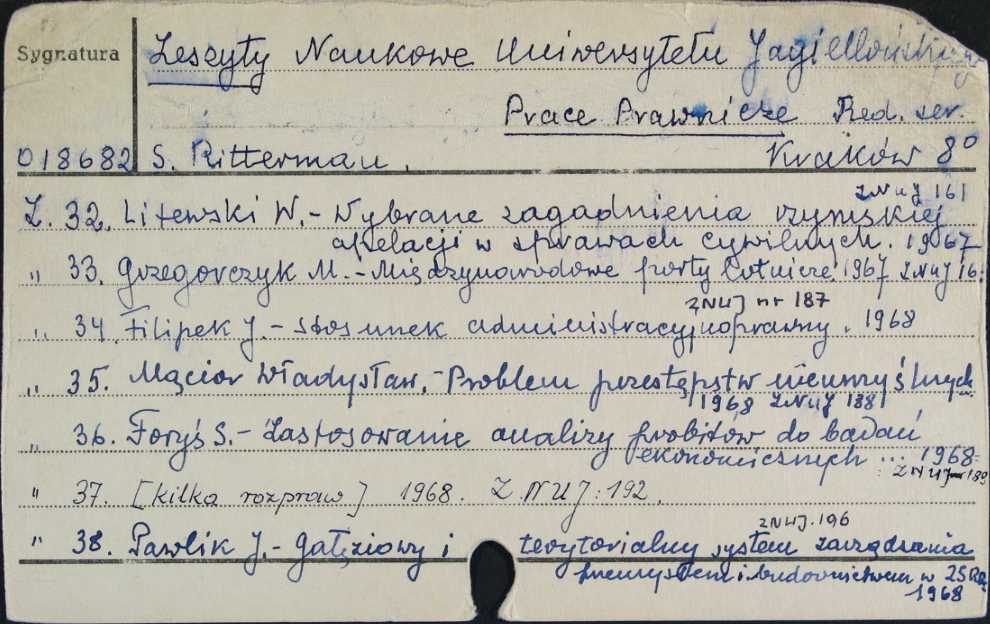 Sygnatura Zeszyty Naukowe Uniwersytetu Jagiellońskiego
Prace Prawnicze Red. ser.
018682 S. Ritterman. Kraków 8°
ZNUJ 161
Z. 32. Litewski W. - Wybrane zagadnienia rzymskiej
apelacji w sprawach cywilnych. 1967
" 33. Grzegorczyk M. - Międzynarodowe porty lotnicze 1967 ZNUJ 16
ZNUJ nr 187
" 34. Filipek J. - Stosunek administracyjnoprawny. 1968
" 35. Mącior Władysław. - Problem przestępstw nieumyślnych
1968 ZNUJ 188
" 36. Foryś S. - Zastosowanie analizy probitów do badań
ekonomicznych ... 1968
ZNUJ 189
" 37. [kilka rozpraw] 1968. ZNUJ: 192.
ZNUJ. 196
" 38. Pawlik J. - Gałęziowy i terytorialny system zarządzania
przemysłem i budownictwem w ZSRR
1968